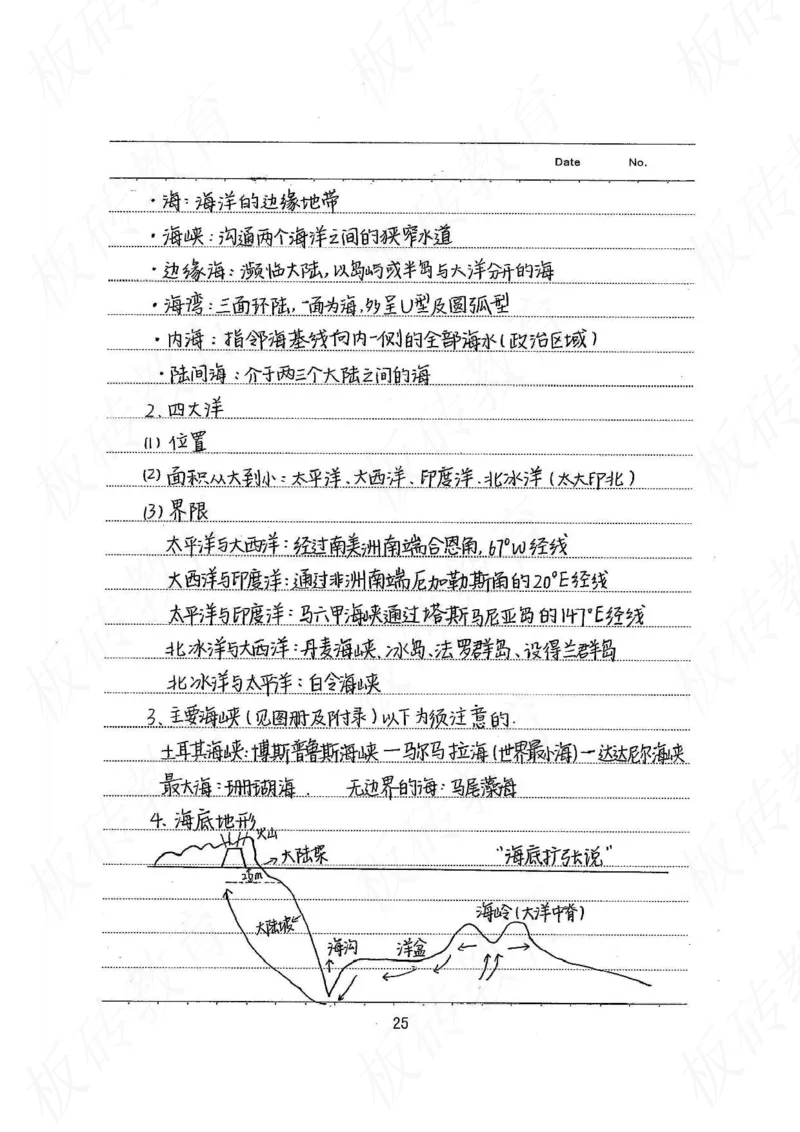 Date No.
·海:海洋的边缘地带
·海峡:沟通两个海洋之间的狭窄水道
·边缘海:濒临大陆,以岛屿或半岛与大洋分开的海
·海湾:三面环陆,一面为海,多呈U型及圆弧型
·内海:指邻海基线向内一侧的全部海水(政治区域)
·陆间海:介于两三个大陆之间的海
2、四大洋
(1)位置
(2)面积从大到小:太平洋、大西洋、印度洋、北冰洋(太大印北)
(3)界限
太平洋与大西洋:经过南美洲南端合恩角,67°W经线
大西洋与印度洋:通过非洲南端厄加勒斯角的20°E经线
太平洋与印度洋:马六甲海峡通过塔斯马尼亚岛的147°E经线
北冰洋与大西洋:丹麦海峡、冰岛、法罗群岛、设得兰群岛
北冰洋与太平洋:白令海峡
3、主要海峡(见图册及附录)以下为须注意的.
土耳其海峡:博斯普鲁斯海峡—马尔马拉海(世界最小海)—达达尼尔海峡
最大海:珊瑚海. 无边界的海:马尾藻海
4、海底地形
火山
大陆架
"海底扩张说"
大陆坡
海沟
洋盆
海岭(大洋中脊)
25
板砖教育